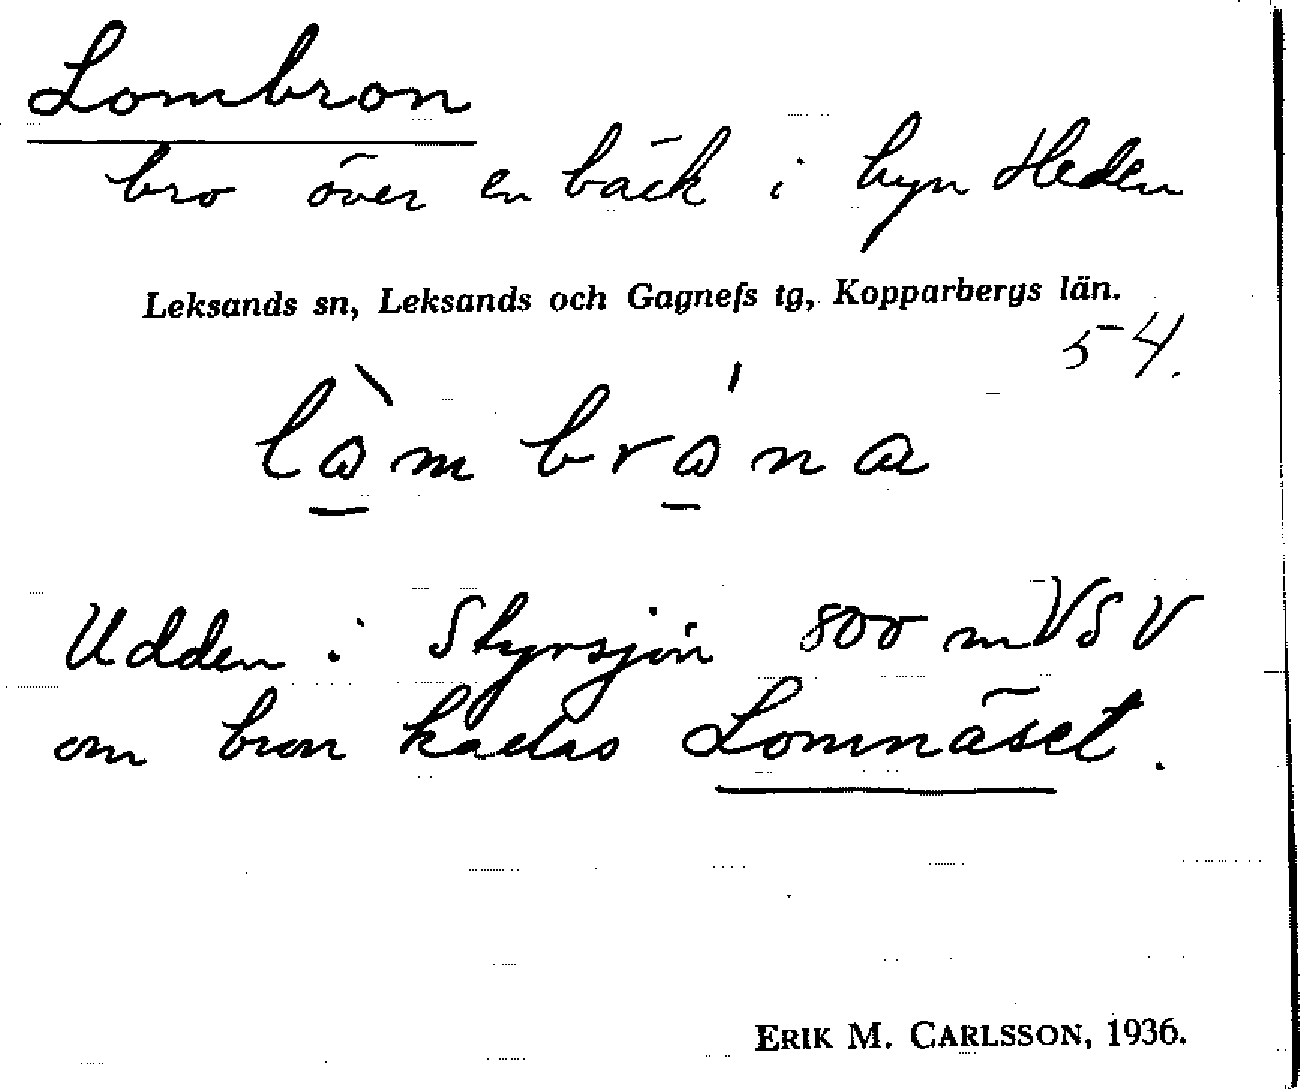 Lombron
bro över en bäck i byn Heden
Leksands sn, Leksands och Gagnefs tg, Kopparbergs län.
54.
lòm bróna
Udden i Styrsjön 800 m VSV
om bron kallas Lomnäset.
ERIK M. CARLSSON, 1936.